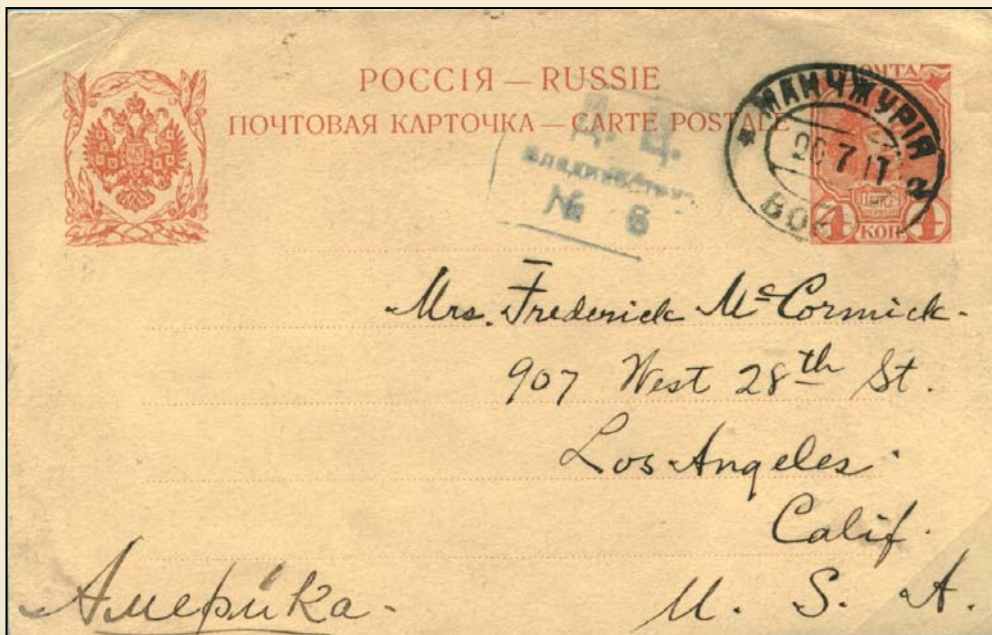 РОССІЯ — RUSSIE
ПОЧТОВАЯ КАРТОЧКА — CARTE POSTALE
ПОЧТА
МАНЧЖУРІЯ
7 17
а
ВОК
4 КОП. 4
Д. Ц.
№ 6
Mrs. Frederick McCormick.
907 West 28th St.
Los Angeles
Calif.
U. S. A.
Америка.